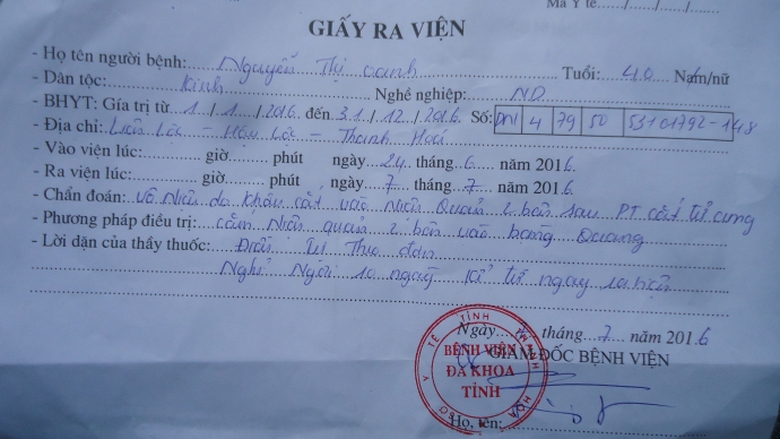 Mã Y tế....../....../......
GIẤY RA VIỆN
- Họ tên người bệnh: Nguyễn Thị Oanh Tuổi: 40 Nam/nữ
- Dân tộc: Kinh Nghề nghiệp: ND
- BHYT: Gía trị từ 1/1/2016 đến 31/12/2016 Số: DN 4 79 50 53101792-148
- Địa chỉ: Liên Lộc - Hậu Lộc - Thanh Hoá
- Vào viện lúc: giờ phút ngày 24 tháng 6 năm 2016
- Ra viện lúc: giờ phút ngày 7 tháng 7 năm 2016
- Chẩn đoán: Vô Niệu do khâu cắt vào Niệu Quản 2 bên sau PT cắt tử cung
- Phương pháp điều trị: cắm Niệu quản 2 bên vào bàng Quang
- Lời dặn của thầy thuốc: Điều Trị Theo đơn
Nghỉ Ngơi 10 ngày kể từ ngày ra viện
Ngày tháng 7 năm 2016
GIÁM ĐỐC BỆNH VIỆN
BỆNH VIỆN
ĐA KHOA
TỈNH
Họ, tên: